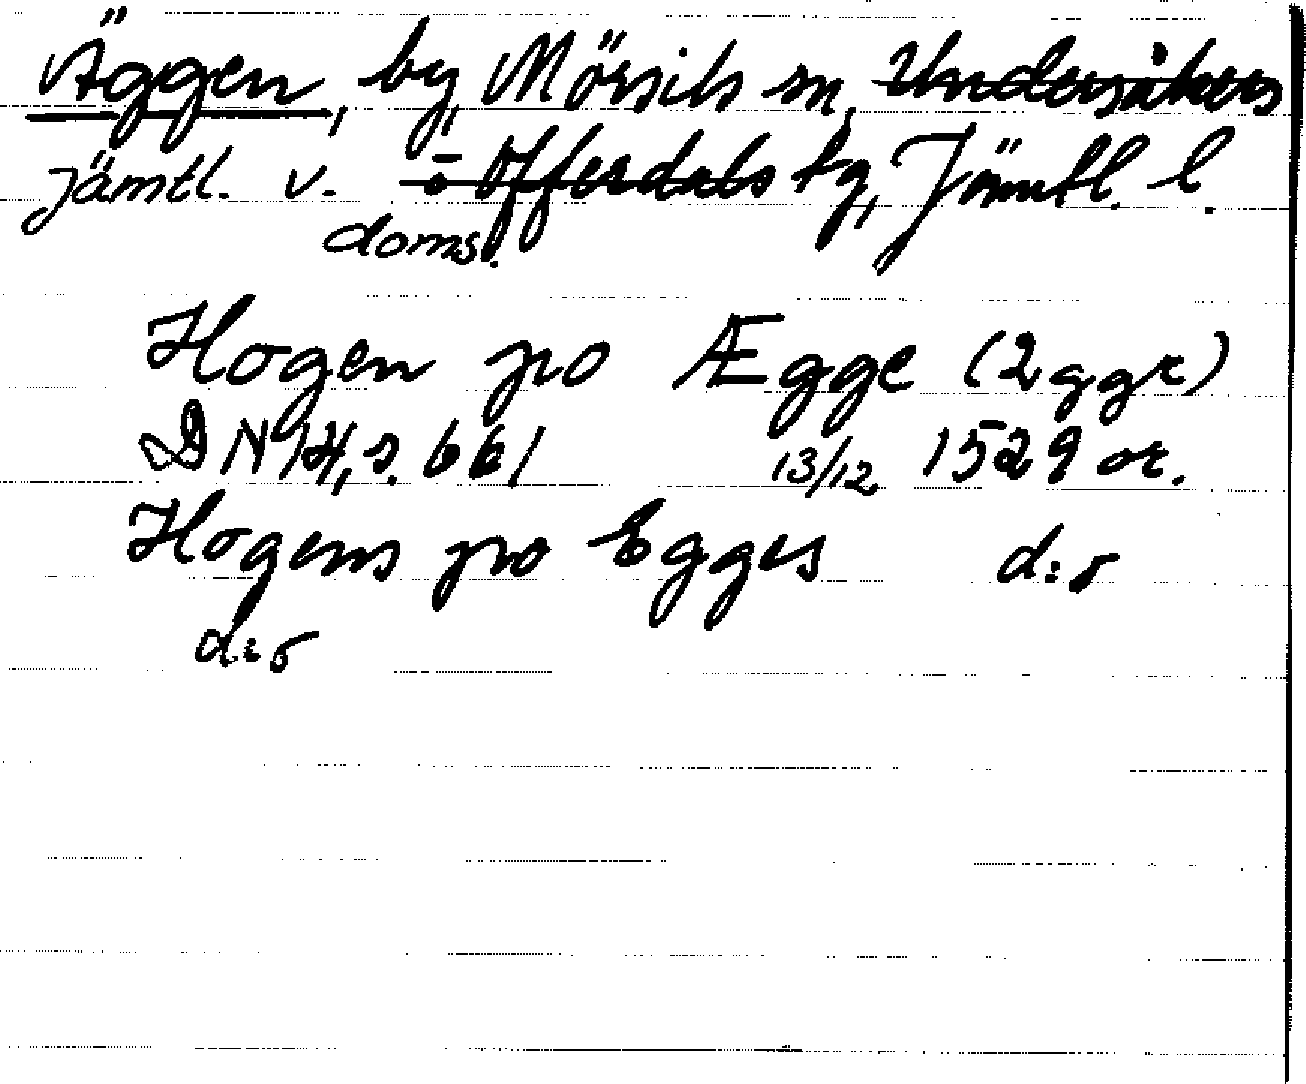 Äggen, by, Mörsils sn, Undersåkers
jämtl. v. o Offerdals tg, Jämtl. l.
doms.
Hogen po Ægge (2 ggr)
DN 14, s. 661 13/12 1529 or.
Hogens po Egges d:o
d:o